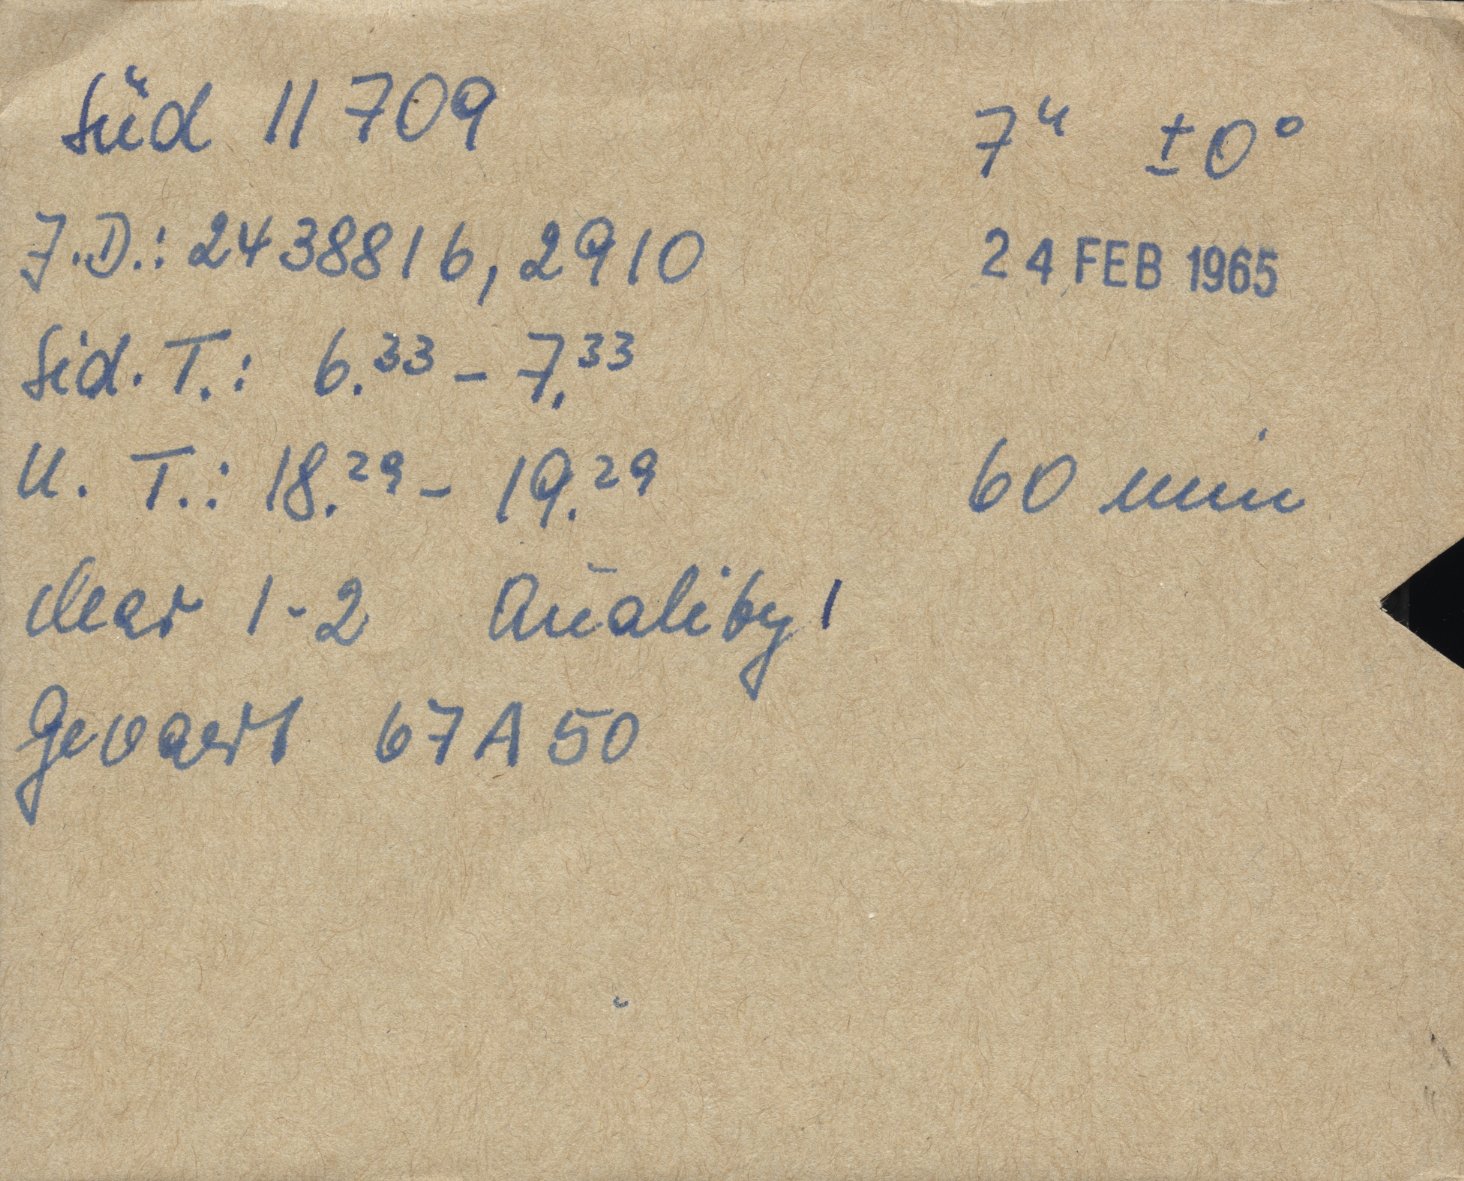 Süd 11709 7ʰ ±0°
J.D.: 2438816,2910 24 FEB 1965
Sid. T.: 6.³³ – 7.³³
U. T.: 18.²⁹ – 19.²⁹ 60 min
clear 1-2 Quality 1
Gevaert 67A50